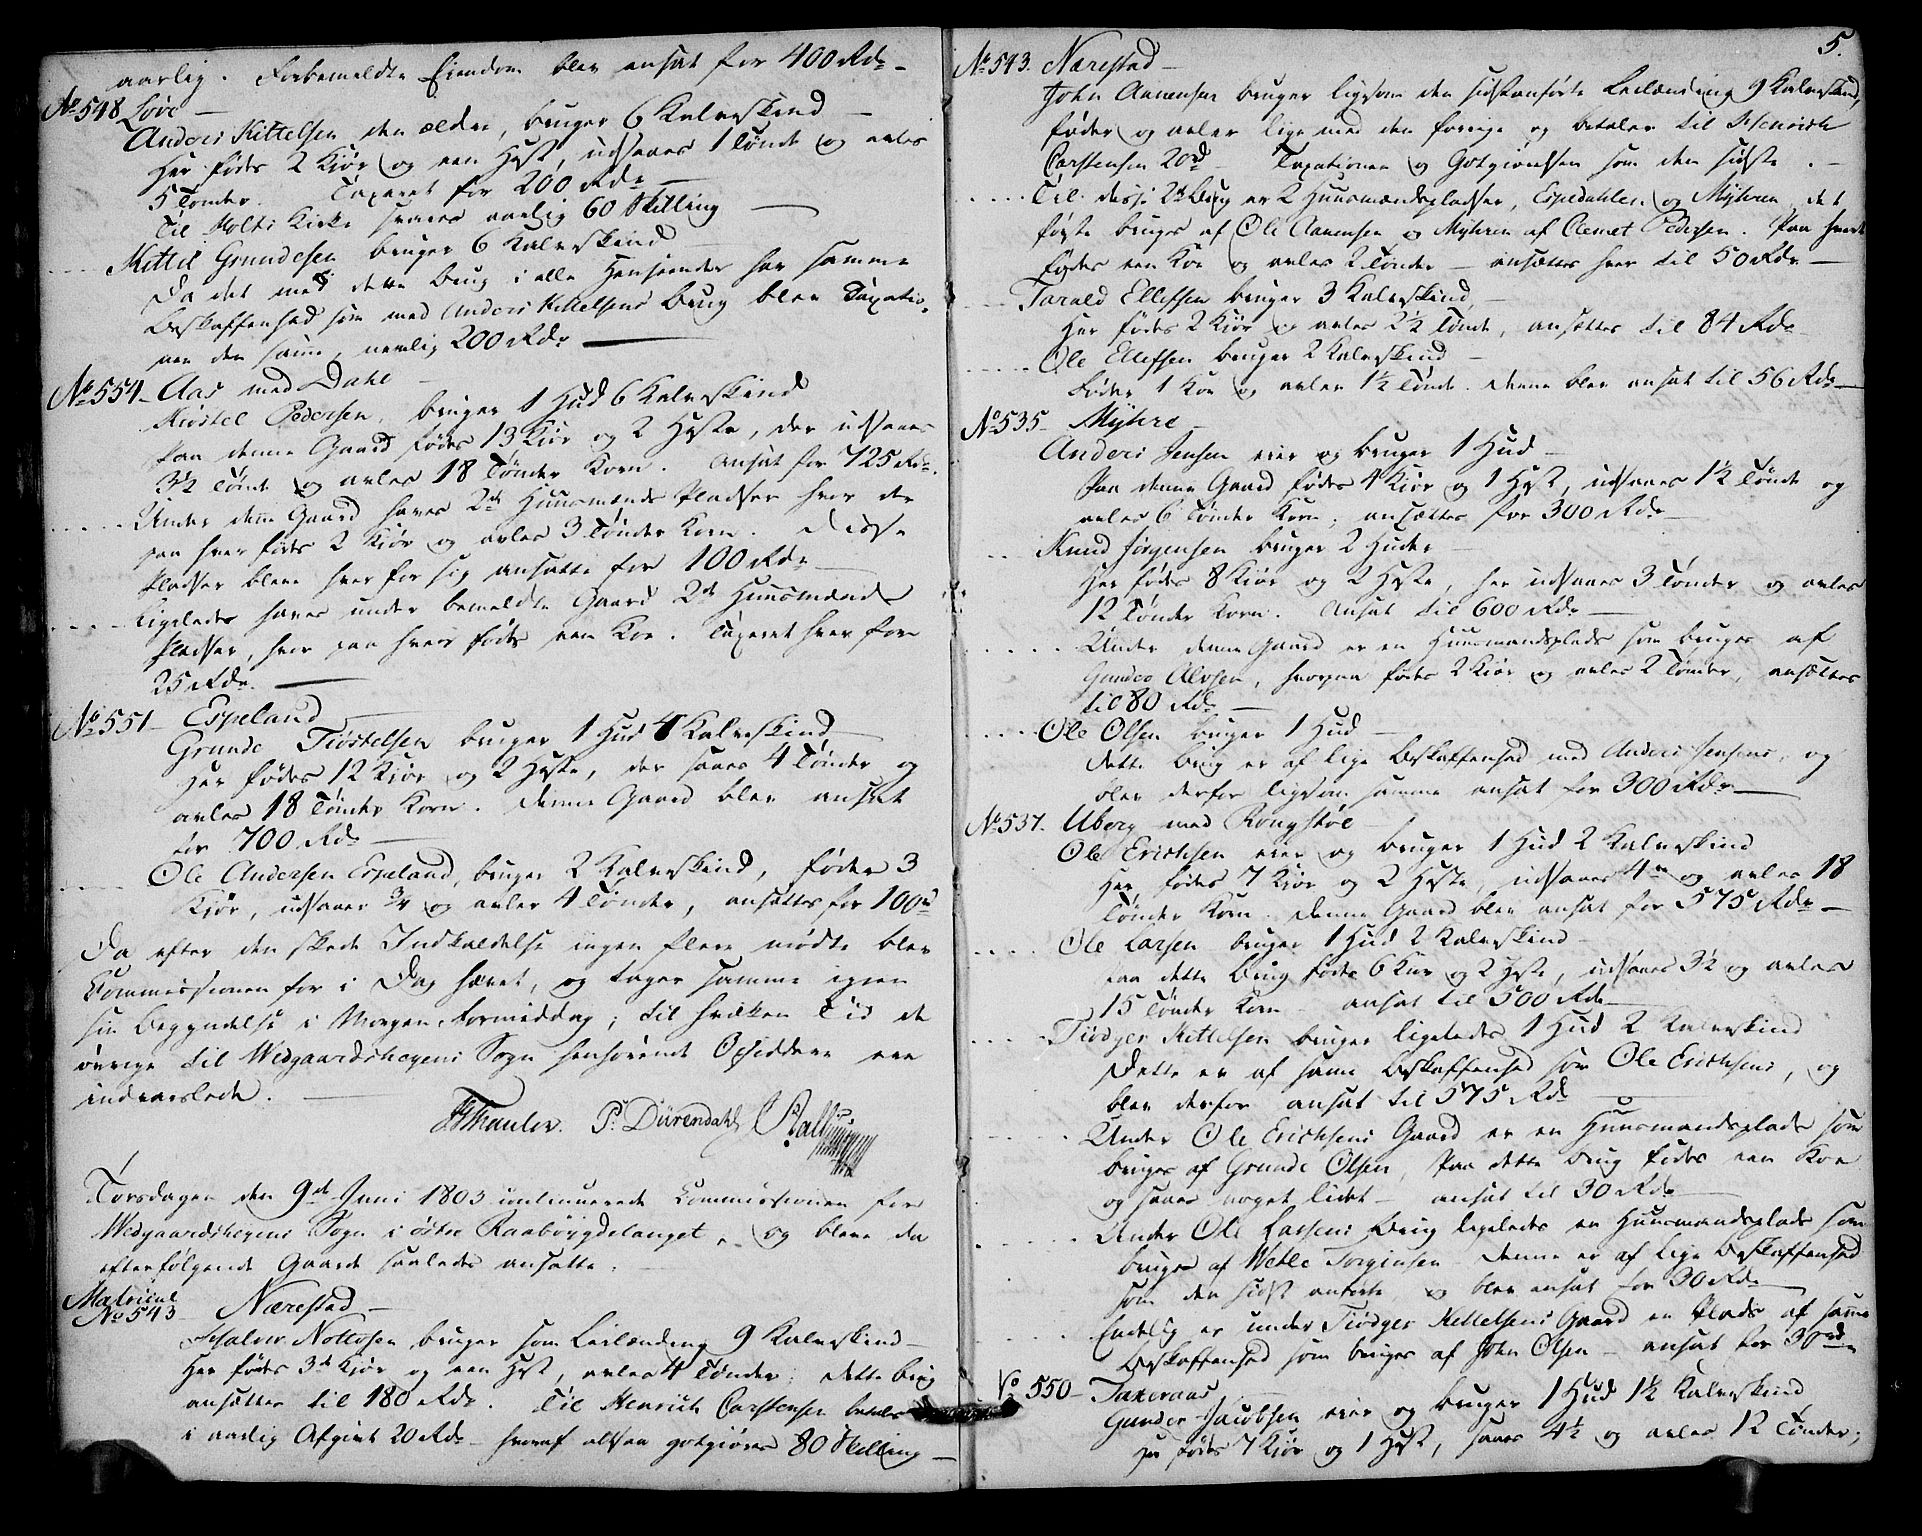 aarlig. Forbemeldte Eiendom blev ansat for 400 Rdr –
No 548. Løve –
Anders Kittelsen den ældre, bruger 6 Kalveskind –
Her fødes 2 Kiør og een Hest, udsaaes 1 Tønde og avles
5 Tønder. Taxeret for 200 Rdr –
Til Holts Kirke svares aarlig 60 Skilling –
Kittil Grundesen bruger 6 Kalveskind
Da det med dette Brug i alle Henseender har samme
Beskaffenhed som med Anders Kittelsens Brug blev Taxatio-
nen den samme, nemlig 200 Rdr –
No 554 – Aas med Dahl –
Kiøstel Pedersen, bruger 1 Hud 6 Kalveskind
Paa denne Gaard fødes 13 Kiør og 2 Heste, der udsaaes
3½ Tønde og avles 18 Tønder Korn. Ansat for 725 Rdr.
Under denne Gaard haves 2de Huusmands Pladser hvor der
paa hver fødes 2 Kiør og avles 3 Tønder Korn. Disse
Pladser bleve hver for sig ansatte for 100 Rdr –
Ligeledes haves under bemeldte Gaard 2de Huusmænds
Pladser, hvor paa hver fødes een Koe. Taxeret hver for
25 Rdr. –
No 551 – Espeland –
Grunde Tiøstelsen bruger 1 Hud 4 Kalveskind –
Her fødes 12 Kiør og 2 Heste, der saaes 4 Tønder og
avles 18 Tønder Korn. Denne Gaard blev ansat
for 700 Rdr –
Ole Andersen Espeland, bruger 2 Kalveskind, føder 3
Kiør, udsaaer ¾ og avler 4 Tønder, ansattes for 100 rd
Da efter den skeede Indkaldelse ingen flere mødte blev
Commissionen for i Dag hævet, og tager samme igien
sin Begyndelse i Morgen Formiddag; til hvilken Tid de
øvrige til Wedgaardsheyens Sogn henhørende Opsiddere ere
indvarslede. –
P. Dürendahl
Torsdagen den 9de Juni 1803 continuerede Commissionen for
Wedgaardsheyens Sogn i østre Raabøygdelauget, og bleve da
efterfølgende Gaarde saaledes ansatte.
Matricul
No 543 – Nærestad –
Halvor Nottosen bruger som Leilænding 9 Kalveskind –
Her fødes 3de Kiør og een Hest, avles 4 Tønder; dette brug
ansættes til 180 Rdr. Til Henrich Carstensen betales
i aarlig Afgivt 20 Rdr – hvoraf altsaa godtgiøres 80 Skilling –
5.
No 543. Nærestad –
John Aanensen bruger ligesom den sidstanførte Leilænding 9 Kalveskind,
føder og avler lige med den forrige og betaler til Henrich
Carstensen 20 rd – Taxationen og Gotgiørelsen som den sidste. –
Til disse 2de Brug er 2 Huusmændspladser, Espedahlen og Myhren, det
første bruges af Ole Aanensen og Myhren af Clemet Pedersen. Paa hvert
fødes een Koe og avles 2 Tønder – ansættes hver til 50 Rdr –
Tarald Ellefsen bruger 3 Kalveskind, –
Her fødes 2 Kiør og avles 2½ Tønde, ansættes til 84 Rdr
Ole Ellefsen bruger 2 Kalveskind –
Føder 1 Koe og avler 1½ Tønde. Denne blev ansat til 56 Rdr –
No 535 – Myhre –
Anders Jensen eier og bruger 1 Hud –
Paa denne Gaard fødes 4 Kiør og 1 Hest, udsaaes 1½ Tønde og
avles 6 Tønder Korn; ansættes for 300 Rdr –
Knud Jørgensen bruger 2 Huder –
Her fødes 8 Kiør og 2 Heste, her udsaaes 3 Tønder og avles
12 Tønder Korn. Ansat til 600 Rdr –
Under denne Gaard er en Huusmandsplads som bruges af
Gunder Alvsen, hvorpaa fødes 2 Kiør og avles 2 Tønder, ansættes
til 80 Rdr –
Ole Olsen bruger 1 Hud –
Dette Brug er af lige Beskaffenhed med Anders Jensens, og
blev derfor ligesom samme ansat for 300 Rdr –
No 537. Uberg med Rongstøe –
Ole Erichsen eier og bruger 1 Hud 2 Kalveskind
Her fødes 7 Kiør og 2 Heste, udsaaes 4 og avles 18
Tønder Korn. Denne Gaard blev ansat for 575 Rdr –
Ole Larsen bruger 1 Hud 2 Kalveskind –
Paa dette Brug fødes 6 Kiør og 2 Heste, udsaaes 3½ og avles
15 Tønder Korn – ansat til 500 Rdr –
Tiødger Kittelsen bruger ligeledes 1 Hud 2 Kalveskind
Dette er af samme Beskaffenhed som Ole Erichsens, og
blev derfor ansat til 575 Rdr –
Under Ole Erichsens Gaard er en Huusmandsplads som
bruges af Grunde Olsen, Paa dette Brug fødes een Koe
og saaes noget lidet – ansat til 30 Rdr –
Under Ole Larsens Brug ligeledes en Huusmandsplads som
bruges af Wetle Torginsen – denne er af lige Beskaffenhed
som den sidst anførte, og blev ansat for 30 Rdr
Endelig er under Tiødger Kittelsens Gaard en Plads af samme
Beskaffenhed som bruges af John Olsen – ansat for 30 rdr
No 550 – Taxeraas
Gunder Jacobsen eier og bruger 1 Hud 1½ Kalveskind
Her fødes 7 Kiør og 1 Hest, saaes 4½ og avles 12 Tønder;